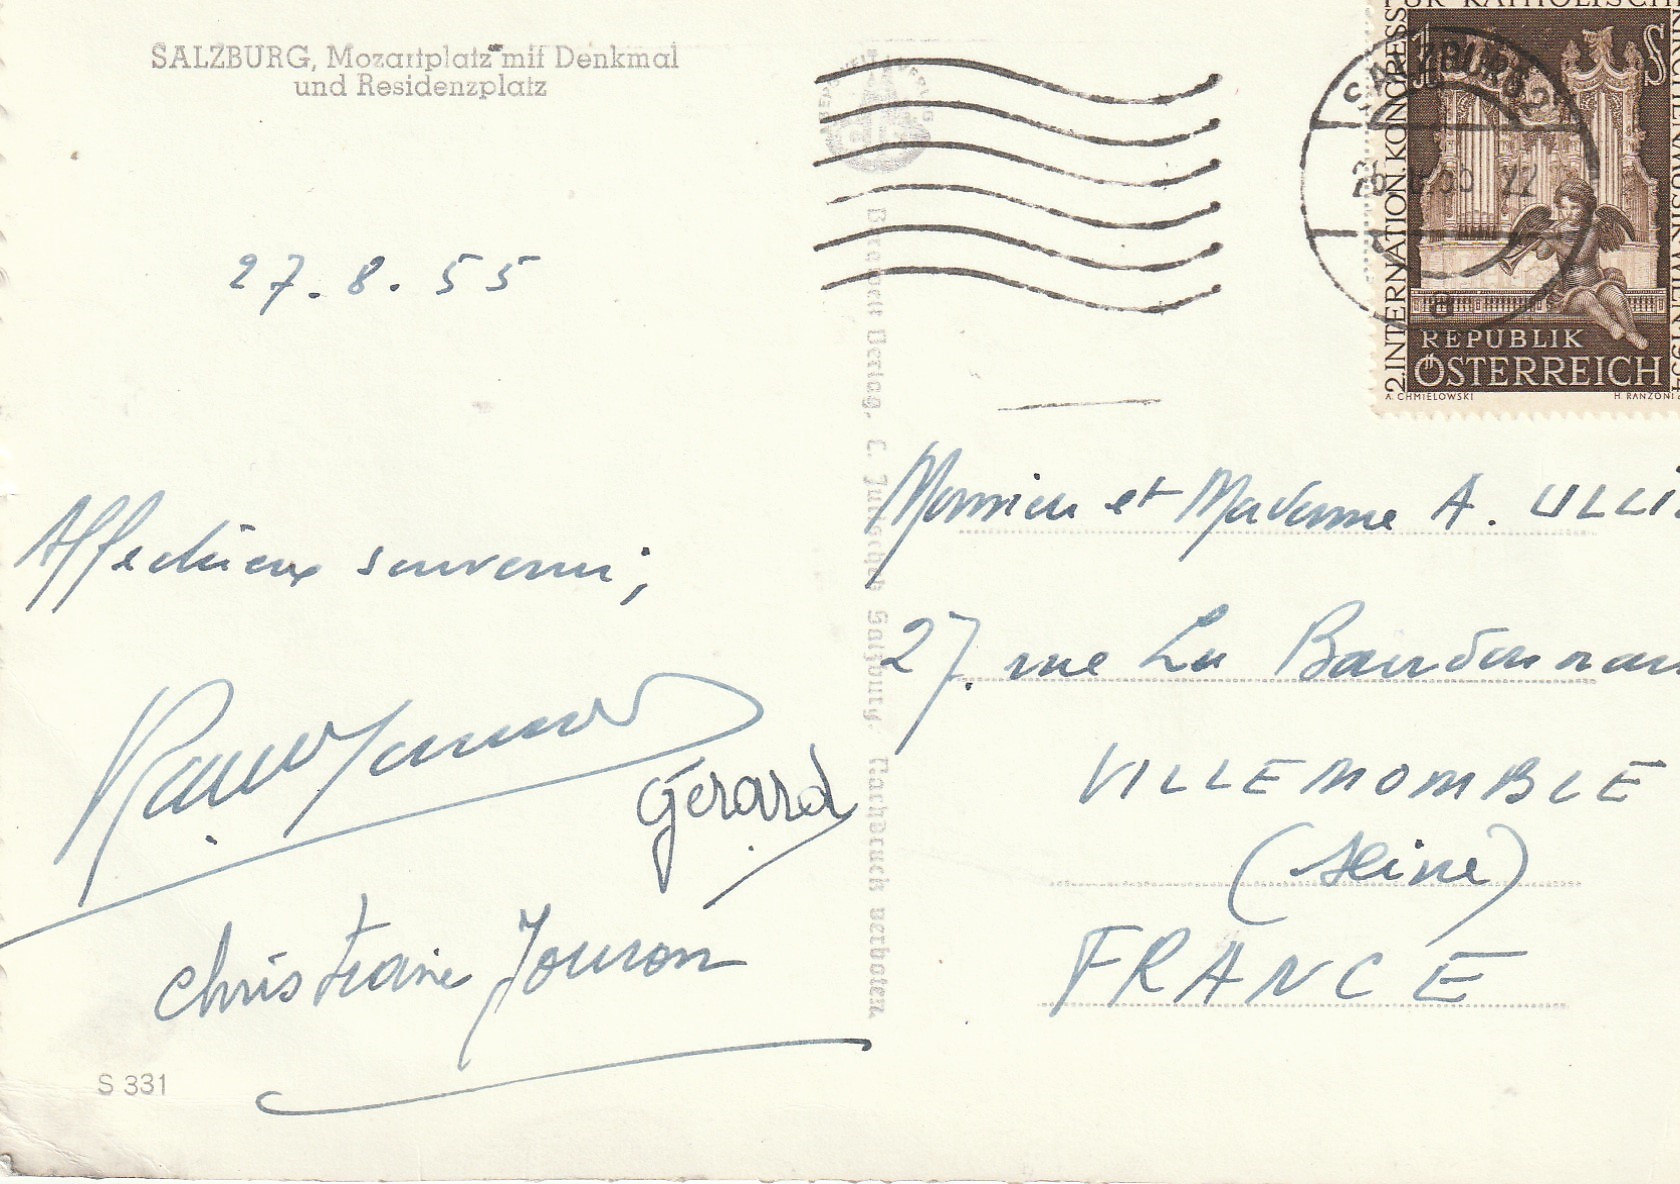 SALZBURG, Mozartplatz mit Denkmal
und Residenzplatz
27.8.55
Affectueux souvenir,
Gérard
Christiane Jouron
S 331
Verlag, C. Jurischek Salzburg. Nachdruck verboten.
SALZBURG 2
FÜR KATHOLISCHE
2.INTERNATION.KONGRESS
1 S
REPUBLIK
ÖSTERREICH
A. CHMIELOWSKI H. RANZONI
Monsieur et Madame A. ULLI
27. rue La
VILLEMOMBLE
(Seine)
FRANCE